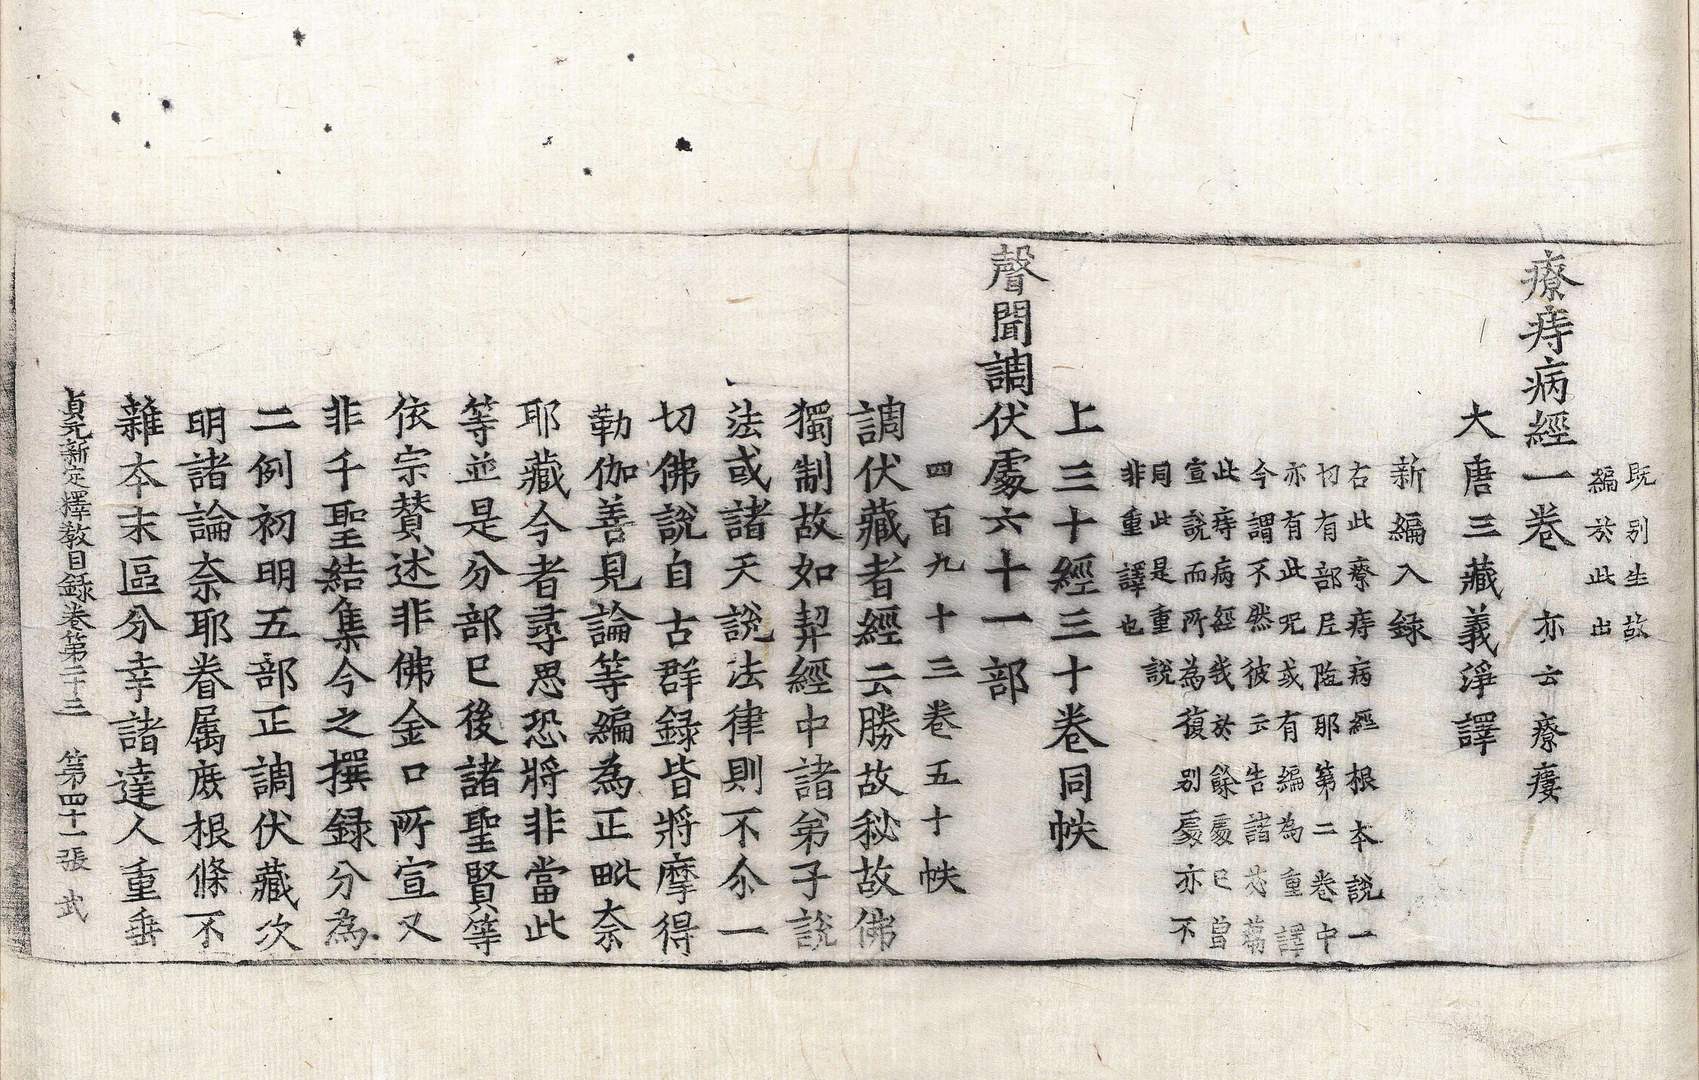 既别生故
編於此出
療痔病經一卷 亦云療瘻
大唐三藏義淨譯
新編入録
右此療痔病經根本說一
切有部尼陁耶第二卷中
亦有此呪或有編為重譯
今謂不然彼云告諸苾蒭
此痔病經我於餘處已曽
宣說而所為復别處亦不
同此是重說
非重譯也
上三十經三十卷同帙
聲聞調伏處六十一部
四百九十三卷五十帙
調伏藏者經云勝故秘故佛
獨制故如契經中諸弟子說
法或諸天說法律則不尒一
切佛說自古群録皆將摩得
勒伽善見論等編為正毗奈
耶藏今者尋思恐將非當此
等並是分部已後諸聖賢等
依宗賛述非佛金口所宣又
非千聖結集今之撰録分為
二例初明五部正調伏藏次
明諸論奈耶眷属庶根條不
雜本末區分幸諸達人重垂
貞元新定釋教目録卷第二十三 第四十一張 武